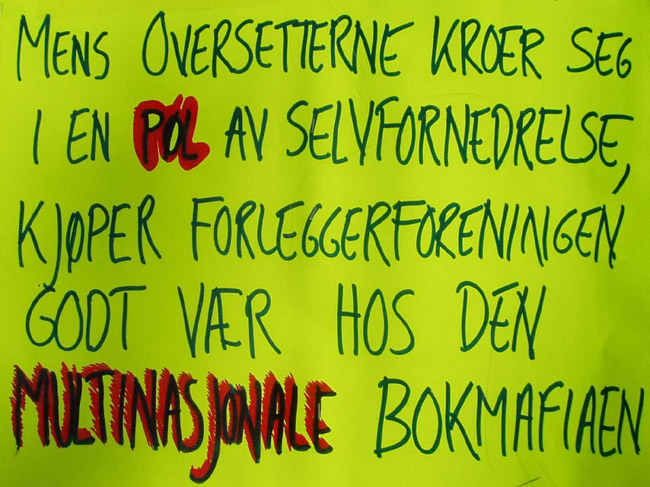 MENS OVERSETTERNE KROER SEG
I EN PØL AV SELVFORNEDRELSE,
KJØPER FORLEGGERFORENINGEN
GODT VÆR HOS DEN
MULTINASJONALE BOKMAFIAEN